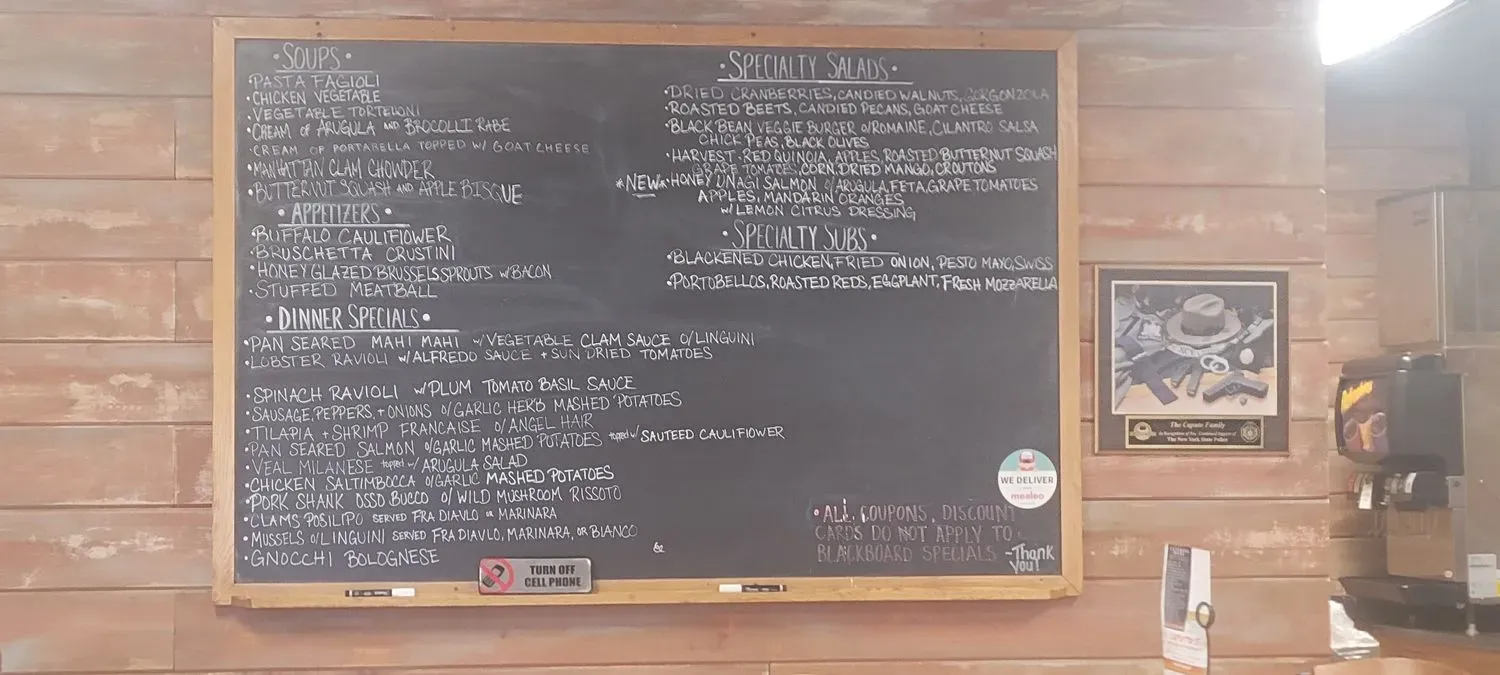 •SOUPS•
•PASTA FAGIOLI
•CHICKEN VEGETABLE
•VEGETABLE TORTELONI
•CREAM OF ARUGULA AND BROCOLLI RABE
•CREAM OF PORTABELLA TOPPED W/ GOAT CHEESE
•MANHATTAN CLAM CHOWDER
•BUTTERNUT SQUASH AND APPLE BISQUE
•APPETIZERS•
•BUFFALO CAULIFLOWER
•BRUSCHETTA CRUSTINI
•HONEY GLAZED BRUSSELS SPROUTS W/ BACON
•STUFFED MEATBALL
•DINNER SPECIALS•
•PAN SEARED MAHI MAHI W/ VEGETABLE CLAM SAUCE O/ LINGUINI
•LOBSTER RAVIOLI W/ ALFREDO SAUCE + SUN DRIED TOMATOES
•SPINACH RAVIOLI W/ PLUM TOMATO BASIL SAUCE
•SAUSAGE, PEPPERS, + ONIONS O/ GARLIC HERB MASHED POTATOES
•TILAPIA + SHRIMP FRANCAISE O/ ANGEL HAIR
•PAN SEARED SALMON O/ GARLIC MASHED POTATOES topped w/ SAUTEED CAULIFLOWER
•VEAL MILANESE topped w/ ARUGULA SALAD
•CHICKEN SALTIMBOCCA O/ GARLIC MASHED POTATOES
•PORK SHANK OSSO BUCCO O/ WILD MUSHROOM RISSOTO
•CLAMS POSILIPO SERVED FRA DIAVLO OR MARINARA
•MUSSELS O/ LINGUINI SERVED FRA DIAVLO, MARINARA, OR BIANCO
•GNOCCHI BOLOGNESE
•SPECIALTY SALADS•
•DRIED CRANBERRIES, CANDIED WALNUTS, GORGONZOLA
•ROASTED BEETS, CANDIED PECANS, GOAT CHEESE
•BLACK BEAN VEGGIE BURGER O/ ROMAINE, CILANTRO SALSA
CHICK PEAS, BLACK OLIVES
•HARVEST - RED QUINOIA, APPLES, ROASTED BUTTERNUT SQUASH
GRAPE TOMATOES, CORN, DRIED MANGO, CROUTONS
*NEW* •HONEY UNAGI SALMON O/ ARUGULA, FETA, GRAPE TOMATOES
APPLES, MANDARIN ORANGES
W/ LEMON CITRUS DRESSING
•SPECIALTY SUBS•
•BLACKENED CHICKEN, FRIED ONION, PESTO MAYO, SWISS
•PORTOBELLOS, ROASTED REDS, EGGPLANT, FRESH MOZZARELLA
WE DELIVER
mealeo
•ALL COUPONS, DISCOUNT
CARDS DO NOT APPLY TO
BLACKBOARD SPECIALS -Thank
you!
TURN OFF
CELL PHONE
The Caputo Family
The New York State Police